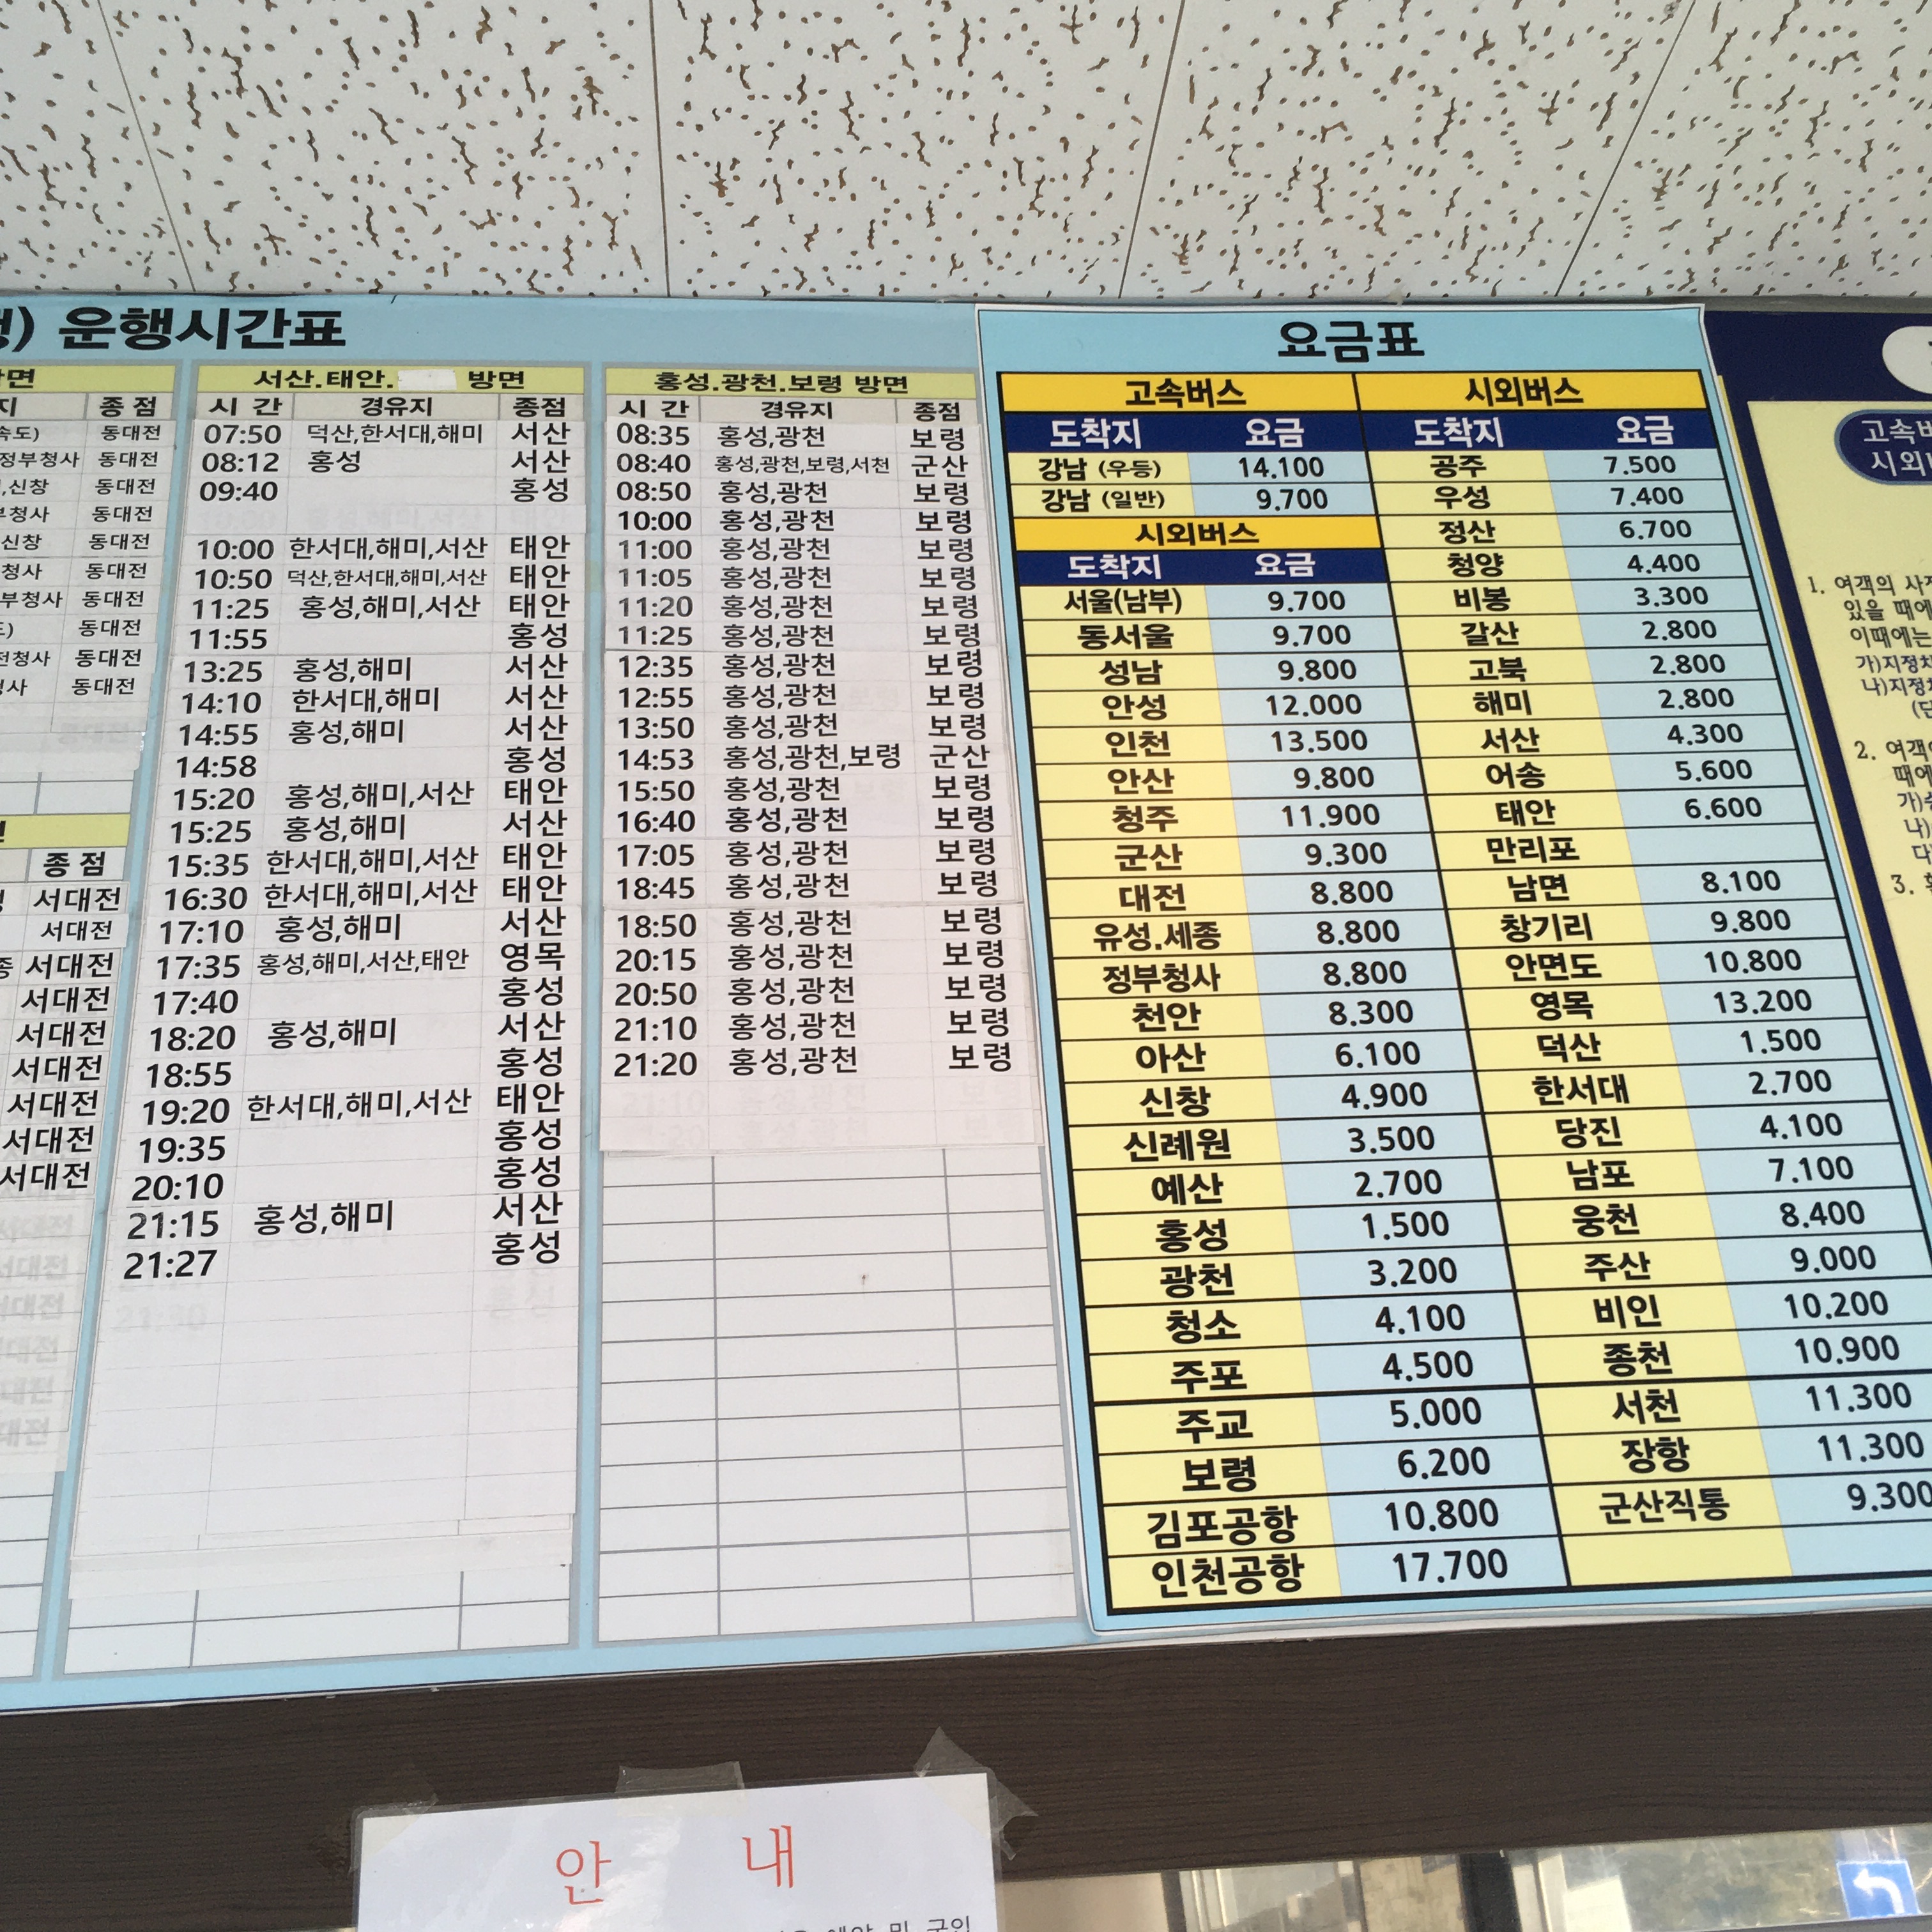 운행시간표
종 점
동대전
정부청사 동대전
신창 동대전
동대전
신창 동대전
청사 동대전
부청사 동대전
동대전
동대전
동대전
종 점
서대전
서대전
서대전
서대전
서대전
서대전
서대전
서대전
서대전
서산.태안. 방면
시 간 경유지 종점
07:50 덕산,한서대,해미 서산
08:12 홍성 서산
09:40 홍성
10:00 한서대,해미,서산 태안
10:50 덕산,한서대,해미,서산 태안
11:25 홍성,해미,서산 태안
11:55 홍성
13:25 홍성,해미 서산
14:10 한서대,해미 서산
14:55 홍성,해미 서산
14:58 홍성
15:20 홍성,해미,서산 태안
15:25 홍성,해미 서산
15:35 한서대,해미,서산 태안
16:30 한서대,해미,서산 태안
17:10 홍성,해미 서산
17:35 홍성,해미,서산,태안 영목
17:40 홍성
18:20 홍성,해미 서산
18:55 홍성
19:20 한서대,해미,서산 태안
19:35 홍성
20:10 홍성
21:15 홍성,해미 서산
21:27 홍성
홍성.광천.보령 방면
시 간 경유지 종점
08:35 홍성,광천 보령
08:40 홍성,광천,보령,서천 군산
08:50 홍성,광천 보령
10:00 홍성,광천 보령
11:00 홍성,광천 보령
11:05 홍성,광천 보령
11:20 홍성,광천 보령
11:25 홍성,광천 보령
12:35 홍성,광천 보령
12:55 홍성,광천 보령
13:50 홍성,광천 보령
14:53 홍성,광천,보령 군산
15:50 홍성,광천 보령
16:40 홍성,광천 보령
17:05 홍성,광천 보령
18:45 홍성,광천 보령
18:50 홍성,광천 보령
20:15 홍성,광천 보령
20:50 홍성,광천 보령
21:10 홍성,광천 보령
21:20 홍성,광천 보령
요금표
고속버스
도착지 요금
강남 (우등) 14.100
강남 (일반) 9.700
시외버스
도착지 요금
서울(남부) 9.700
동서울 9.700
성남 9.800
안성 12.000
인천 13.500
안산 9.800
청주 11.900
군산 9.300
대전 8.800
유성.세종 8.800
정부청사 8.800
천안 8.300
아산 6.100
신창 4.900
신례원 3.500
예산 2.700
홍성 1.500
광천 3.200
청소 4.100
주포 4.500
주교 5.000
보령 6.200
김포공항 10.800
인천공항 17.700
시외버스
도착지 요금
공주 7.500
우성 7.400
정산 6.700
청양 4.400
비봉 3.300
갈산 2.800
고북 2.800
해미 2.800
서산 4.300
어송 5.600
태안 6.600
만리포
남면 8.100
창기리 9.800
안면도 10.800
영목 13.200
덕산 1.500
한서대 2.700
당진 4.100
남포 7.100
웅천 8.400
주산 9.000
비인 10.200
종천 10.900
서천 11.300
장항 11.300
군산직통 9.300
고속버
시외
1. 여객의 사
있을 때에
이때에는
가)지정
나)지정
2. 여객
때에
가)
나)
다
3.
안 내